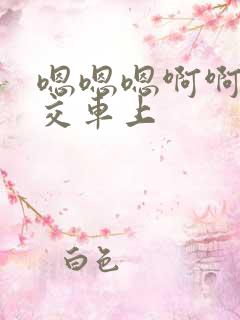 嗯嗯嗯啊啊
交車上
白色